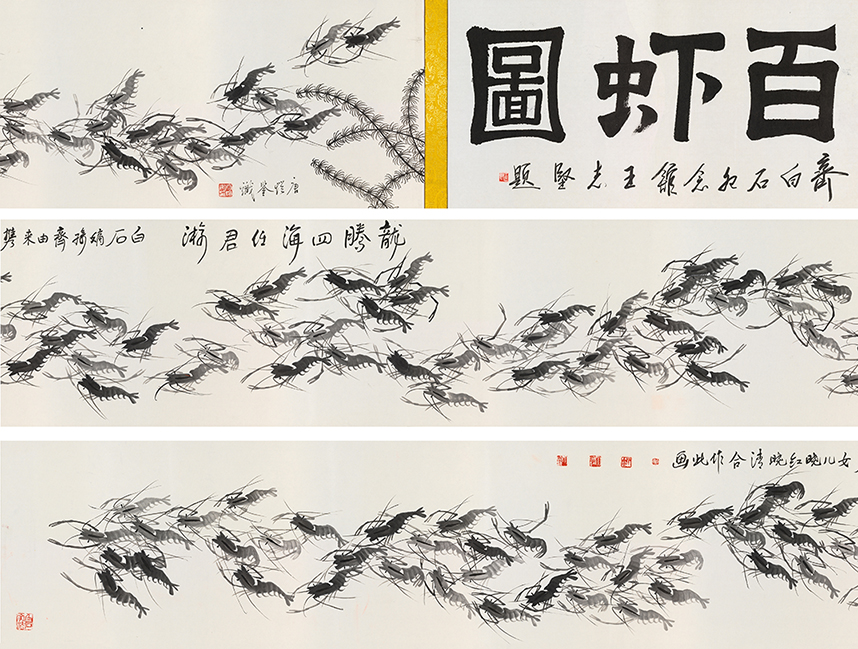 百虾圖
齊白石纪念館王志堅題
龍騰四海任君游
白石嫡孫齊由来携
女儿晓红晓清合作此画